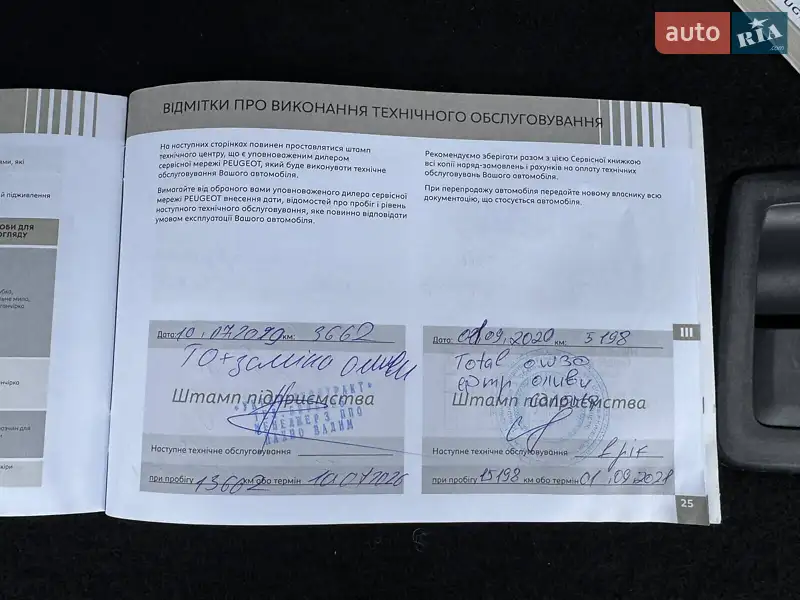 auto RIA
.com
ВІДМІТКИ ПРО ВИКОНАННЯ ТЕХНІЧНОГО ОБСЛУГОВУВАННЯ
На наступних сторінках повинен проставлятися штамп
технічного центру, що є уповноваженим дилером
сервісної мережі PEUGEOT, який буде виконувати технічне
обслуговування Вашого автомобіля.
Вимагайте від обраного вами уповноваженого дилера сервісної
мережі PEUGEOT внесення дати, відомостей про пробіг і рівень
наступного технічного обслуговування, яке повинно відповідати
умовам експлуатації Вашого автомобіля.
Рекомендуємо зберігати разом з цією Сервісної книжкою
всі копії наряд-замовлень і рахунків на оплату технічних
обслуговувань Вашого автомобіля.
При перепродажу автомобіля передайте новому власнику всю
документацію, що стосується автомобіля.
Дата: 10.07.2019 км: 3662
ТО+заміна оливи
Штамп підприємства
МЕНЕДЖЕР З ППО
ВАДИМ
Наступне технічне обслуговування
при пробігу 13662 км або термін 10.07.2020
Дата: 01.09.2020 км: 5198
Total 0W30
фтр оливи
Штамп підприємства
салона
Наступне технічне обслуговування 1 рік
при пробігу 15198 км або термін 01.09.2021
III
25
ами, які
й підживлення
ОБИ ДЛЯ
ОГЛЯДУ